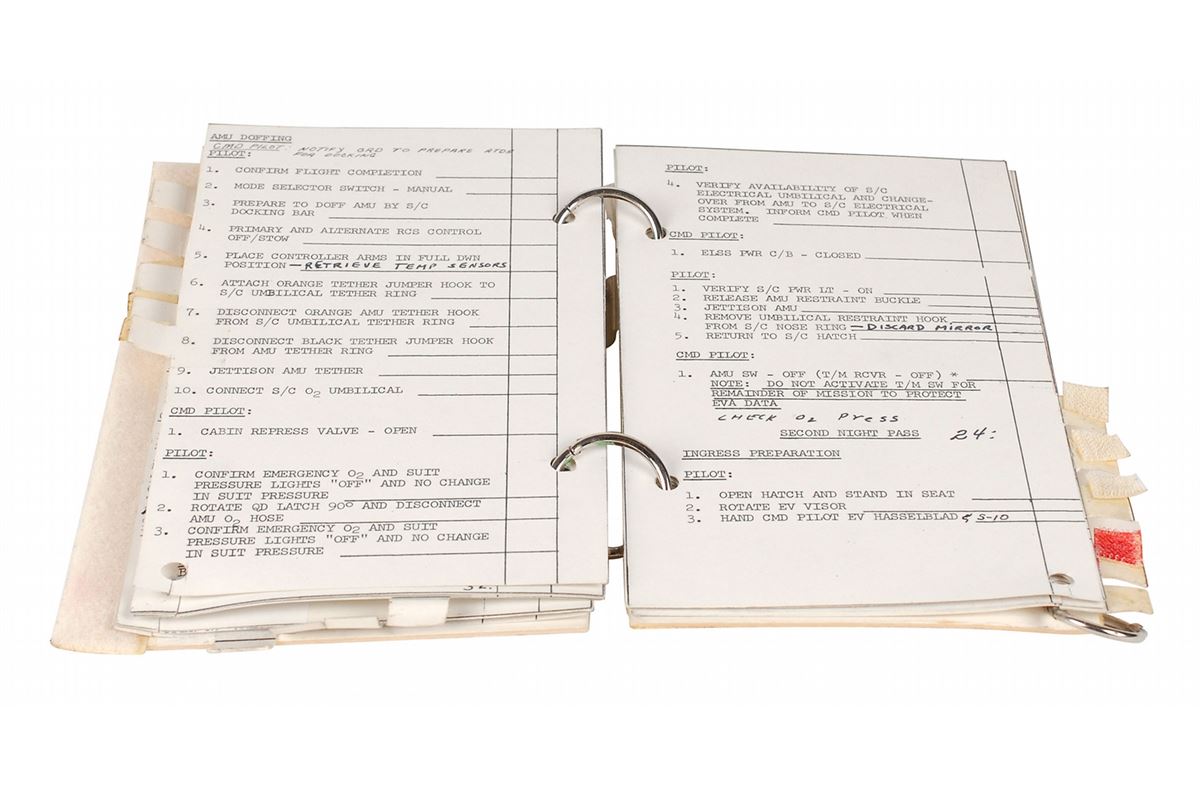 AMU DOFFING
CMD PILOT: NOTIFY GRD TO PREPARE ATDA
PILOT: FOR DOCKING
1. CONFIRM FLIGHT COMPLETION
2. MODE SELECTOR SWITCH - MANUAL
3. PREPARE TO DOFF AMU BY S/C
DOCKING BAR
4. PRIMARY AND ALTERNATE RCS CONTROL
OFF/STOW
5. PLACE CONTROLLER ARMS IN FULL DWN
POSITION — RETRIEVE TEMP SENSORS
6. ATTACH ORANGE TETHER JUMPER HOOK TO
S/C UMBILICAL TETHER RING
7. DISCONNECT ORANGE AMU TETHER HOOK
FROM S/C UMBILICAL TETHER RING
8. DISCONNECT BLACK TETHER JUMPER HOOK
FROM AMU TETHER RING
9. JETTISON AMU TETHER
10. CONNECT S/C O2 UMBILICAL
CMD PILOT:
1. CABIN REPRESS VALVE - OPEN
PILOT:
1. CONFIRM EMERGENCY O2 AND SUIT
PRESSURE LIGHTS "OFF" AND NO CHANGE
IN SUIT PRESSURE
2. ROTATE QD LATCH 90° AND DISCONNECT
AMU O2 HOSE
3. CONFIRM EMERGENCY O2 AND SUIT
PRESSURE LIGHTS "OFF" AND NO CHANGE
IN SUIT PRESSURE
PILOT:
4. VERIFY AVAILABILITY OF S/C
ELECTRICAL UMBILICAL AND CHANGE-
OVER FROM AMU TO S/C ELECTRICAL
SYSTEM. INFORM CMD PILOT WHEN
COMPLETE
CMD PILOT:
1. ELSS PWR C/B - CLOSED
PILOT:
1. VERIFY S/C PWR LT - ON
2. RELEASE AMU RESTRAINT BUCKLE
3. JETTISON AMU
4. REMOVE UMBILICAL RESTRAINT HOOK
FROM S/C NOSE RING — DISCARD MIRROR
5. RETURN TO S/C HATCH
CMD PILOT:
1. AMU SW - OFF (T/M RCVR - OFF) *
NOTE: DO NOT ACTIVATE T/M SW FOR
REMAINDER OF MISSION TO PROTECT
EVA DATA
CHECK O2 PRESS
SECOND NIGHT PASS 24:
INGRESS PREPARATION
PILOT:
1. OPEN HATCH AND STAND IN SEAT
2. ROTATE EV VISOR
3. HAND CMD PILOT EV HASSELBLAD & S-10